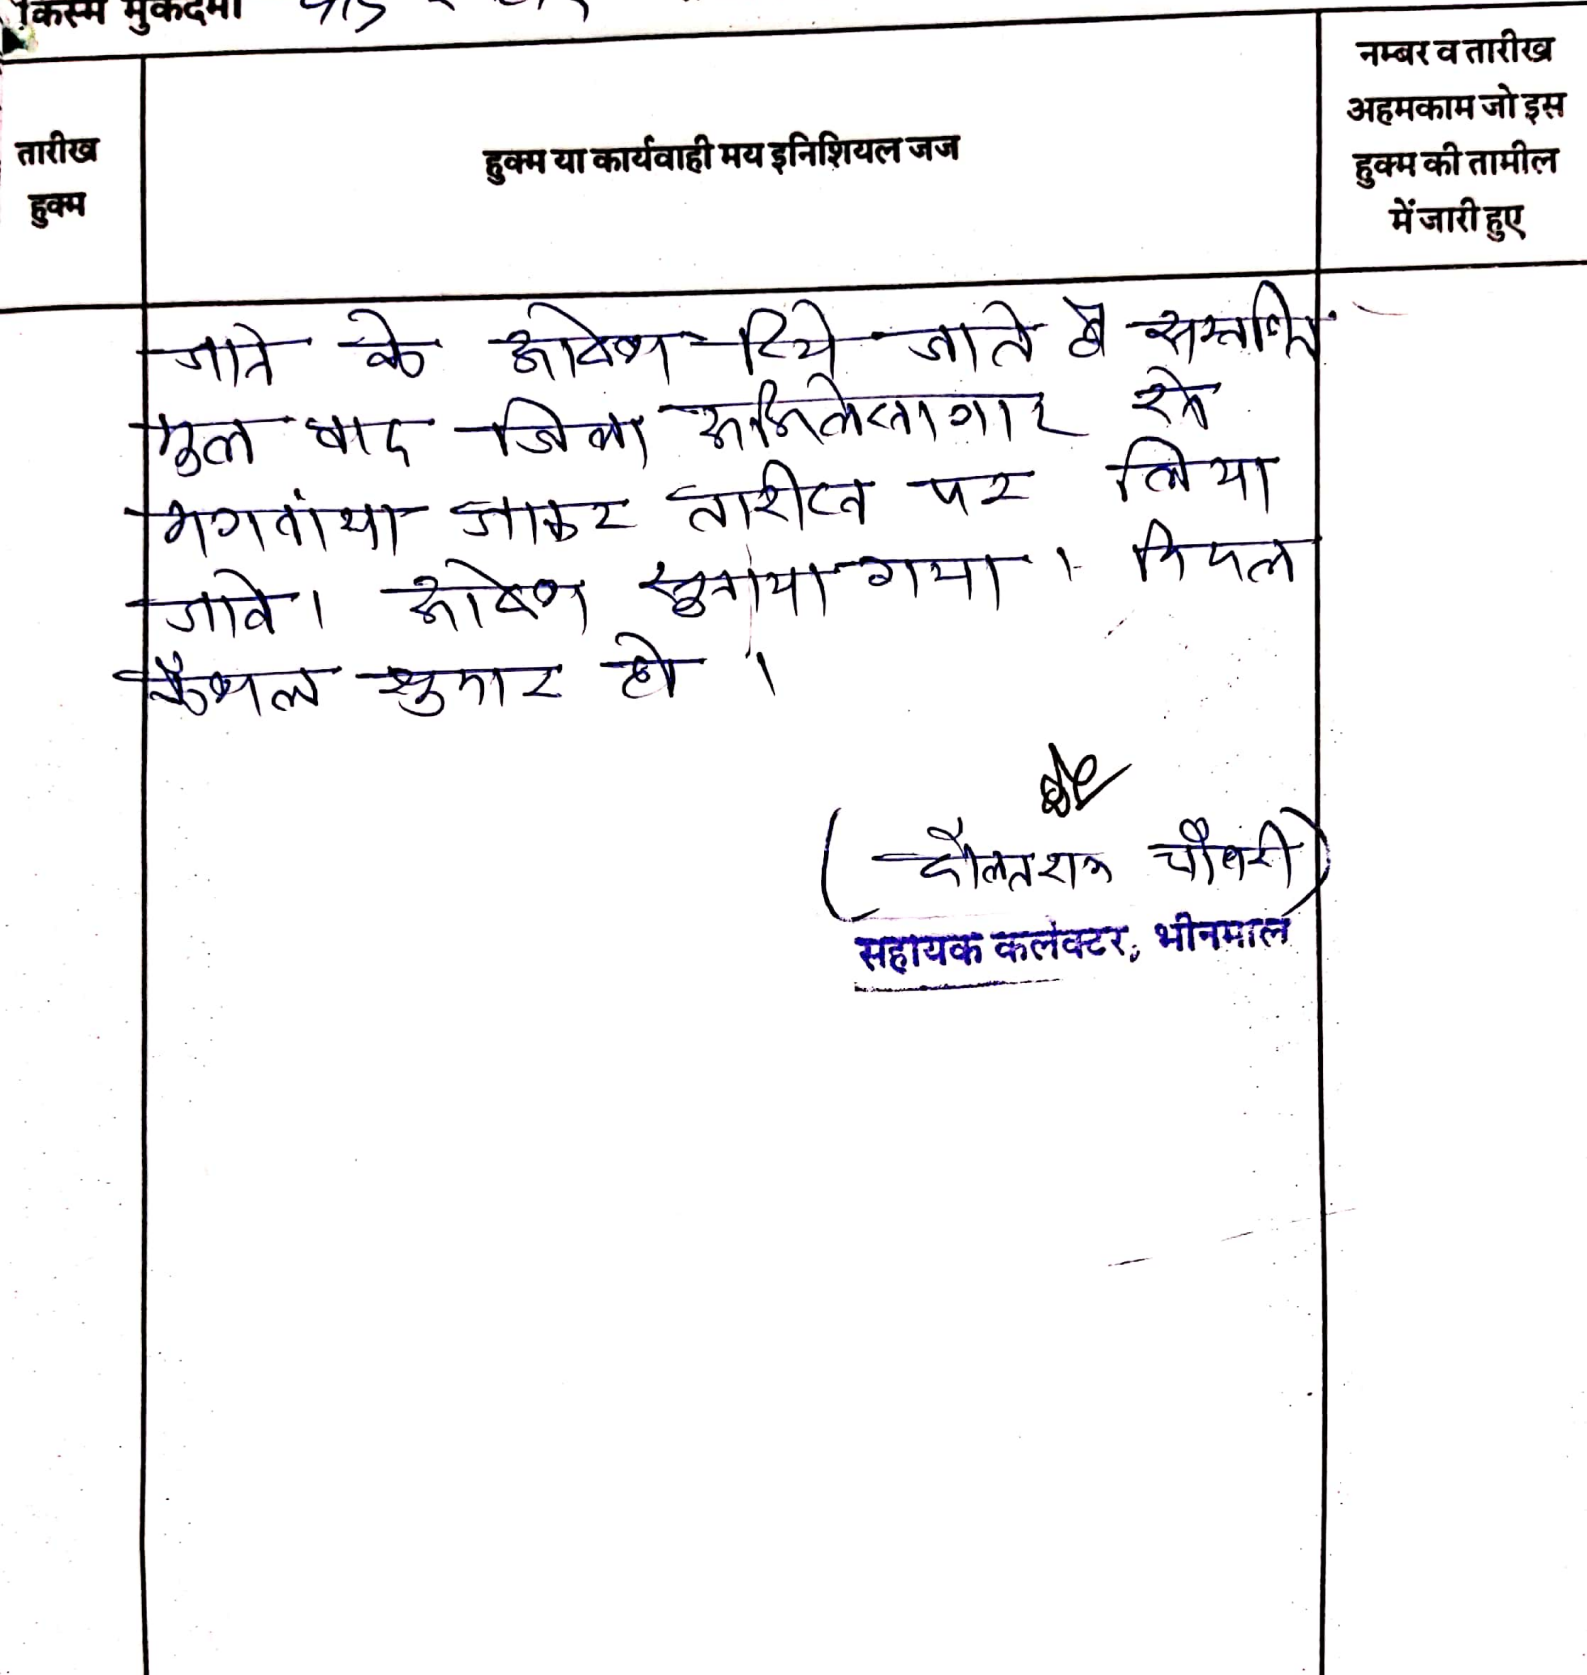 किस्म मुकदमा
तारीख
हुक्म
हुक्म या कार्यवाही मय इनिशियल जज
नम्बर व तारीख
अहमकाम जो इस
हुक्म की तामील
में जारी हुए
जाने के आदेश दिये जाते है
मुल वाद जिला अभिलेखागार से
मगवांया जाकर तारीख पर लिया
जावे। आदेश सुनाया गया।
फैशल शुमार हो ।
(दौलतराम चौधरी)
सहायक कलेक्टर, भीनमाल